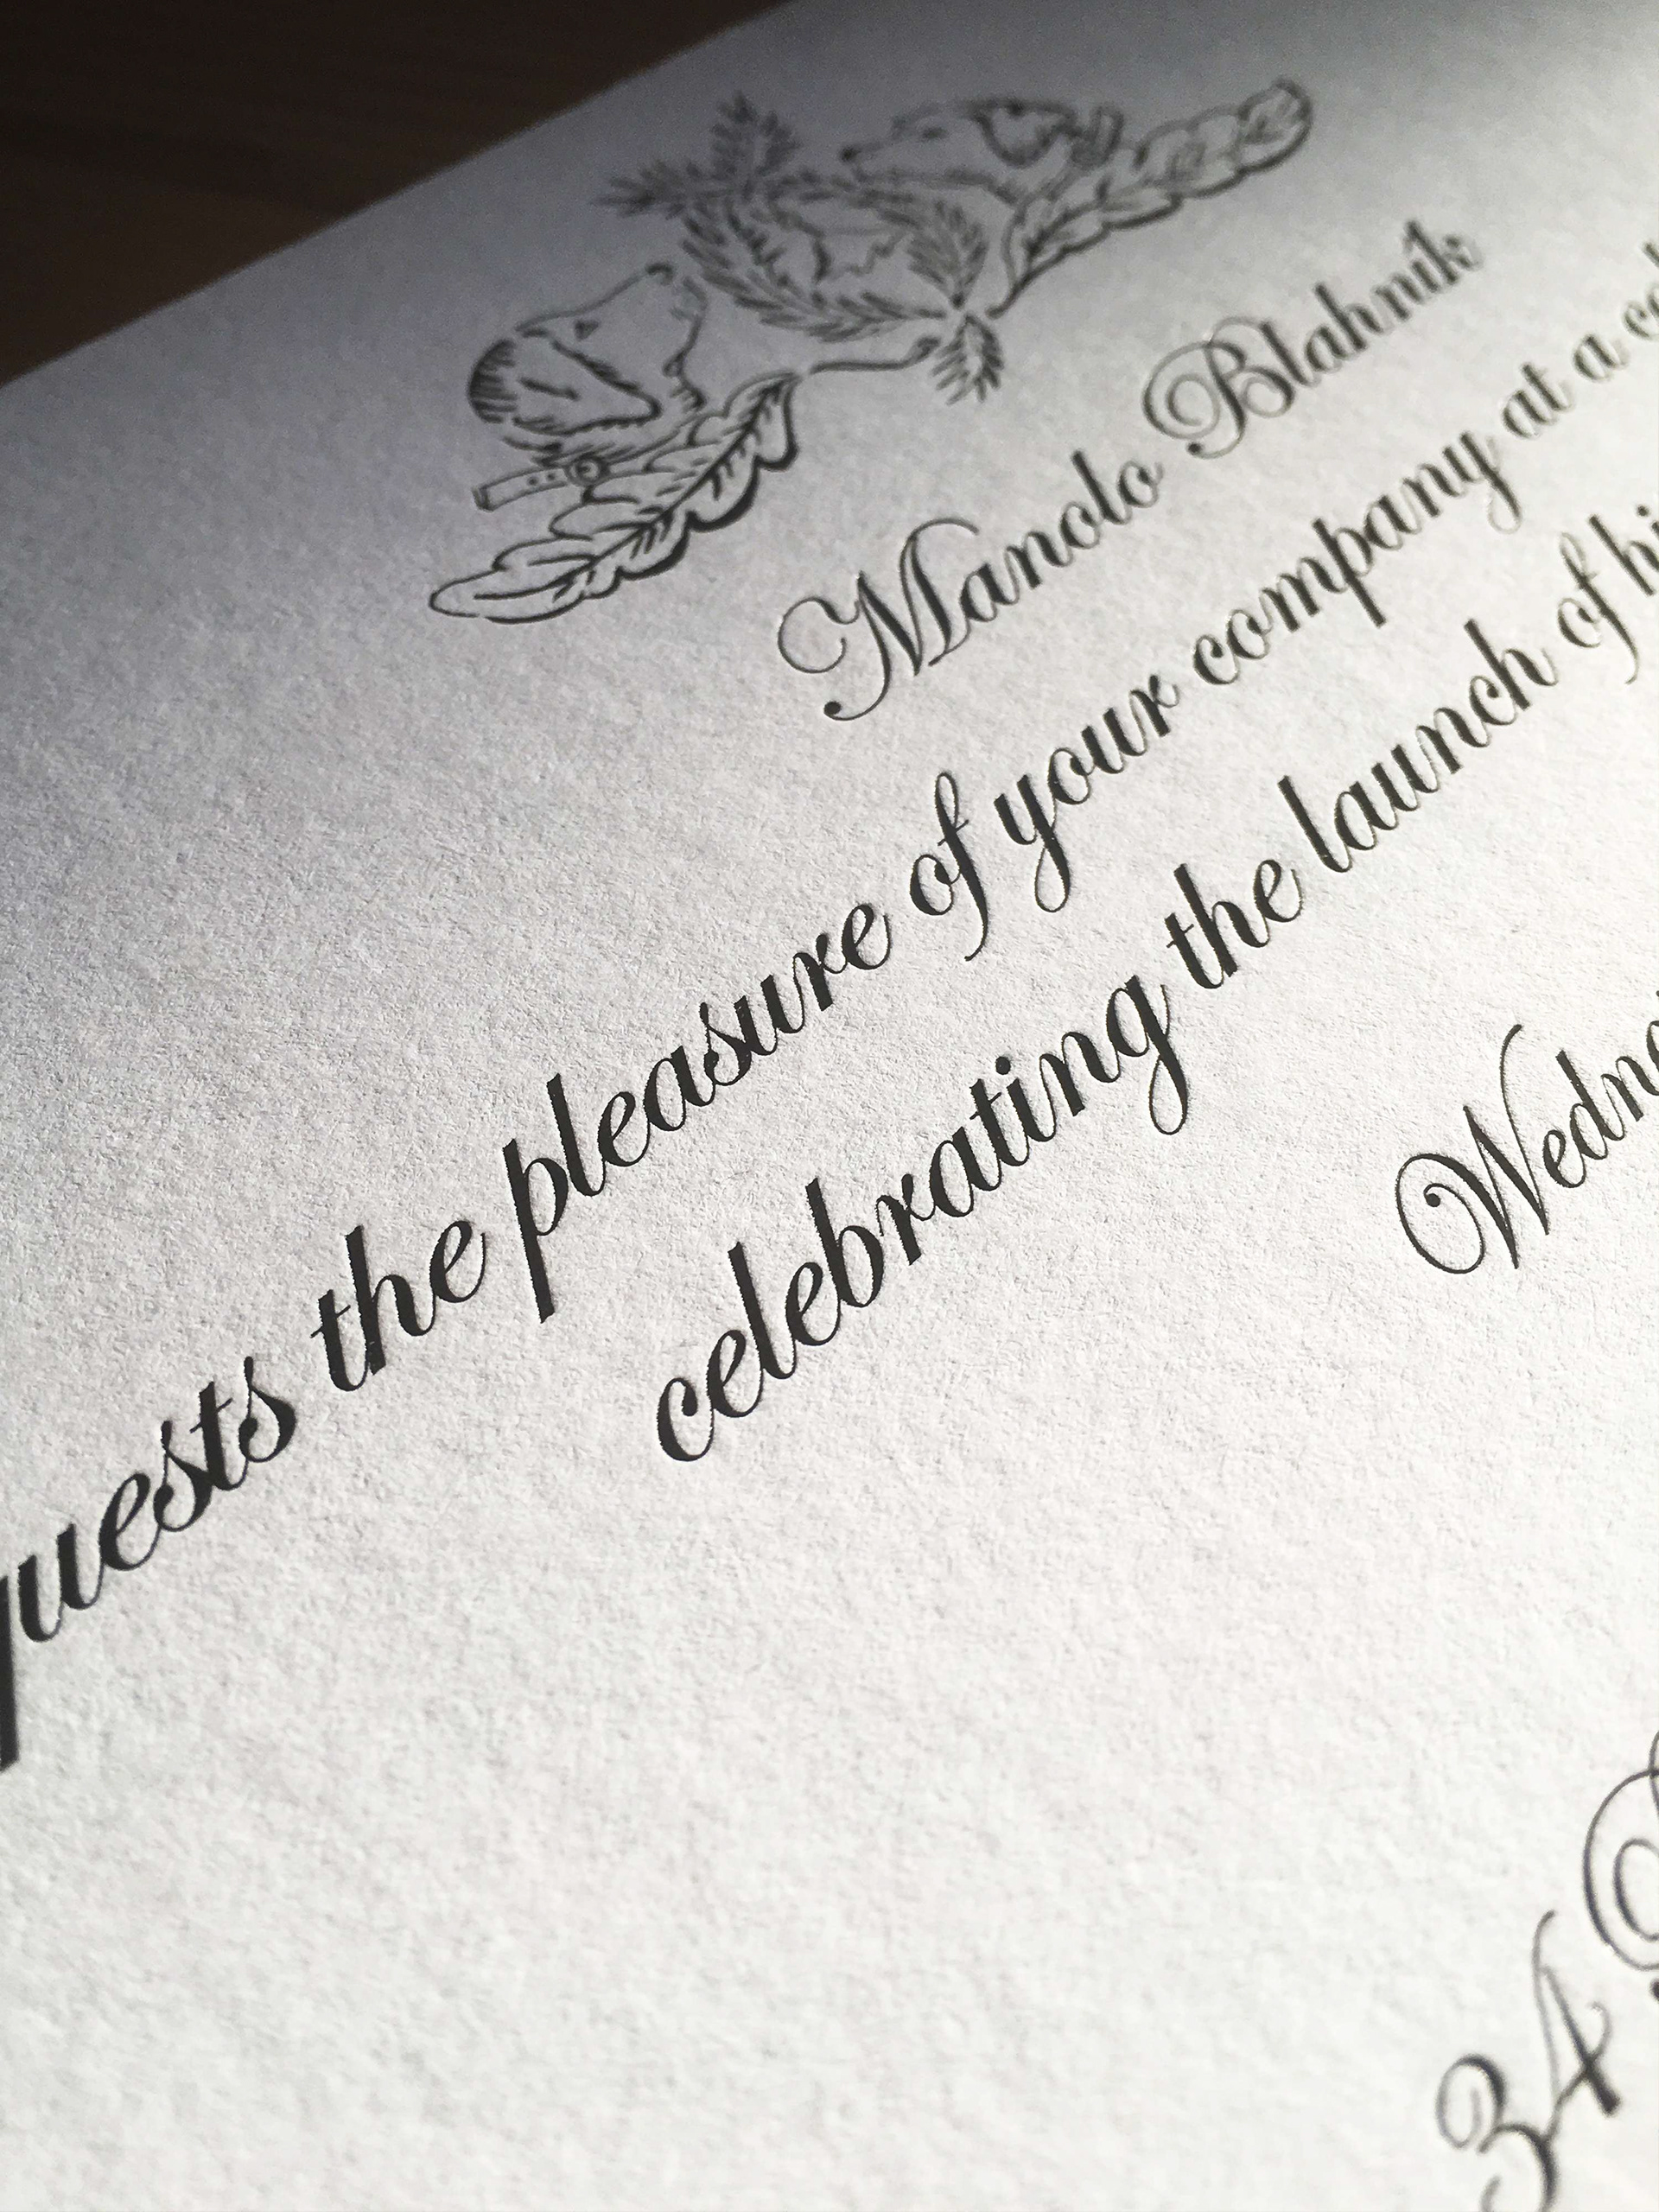 Manolo Blahnik
the pleasure of your company at a
celebrating the launch of
34